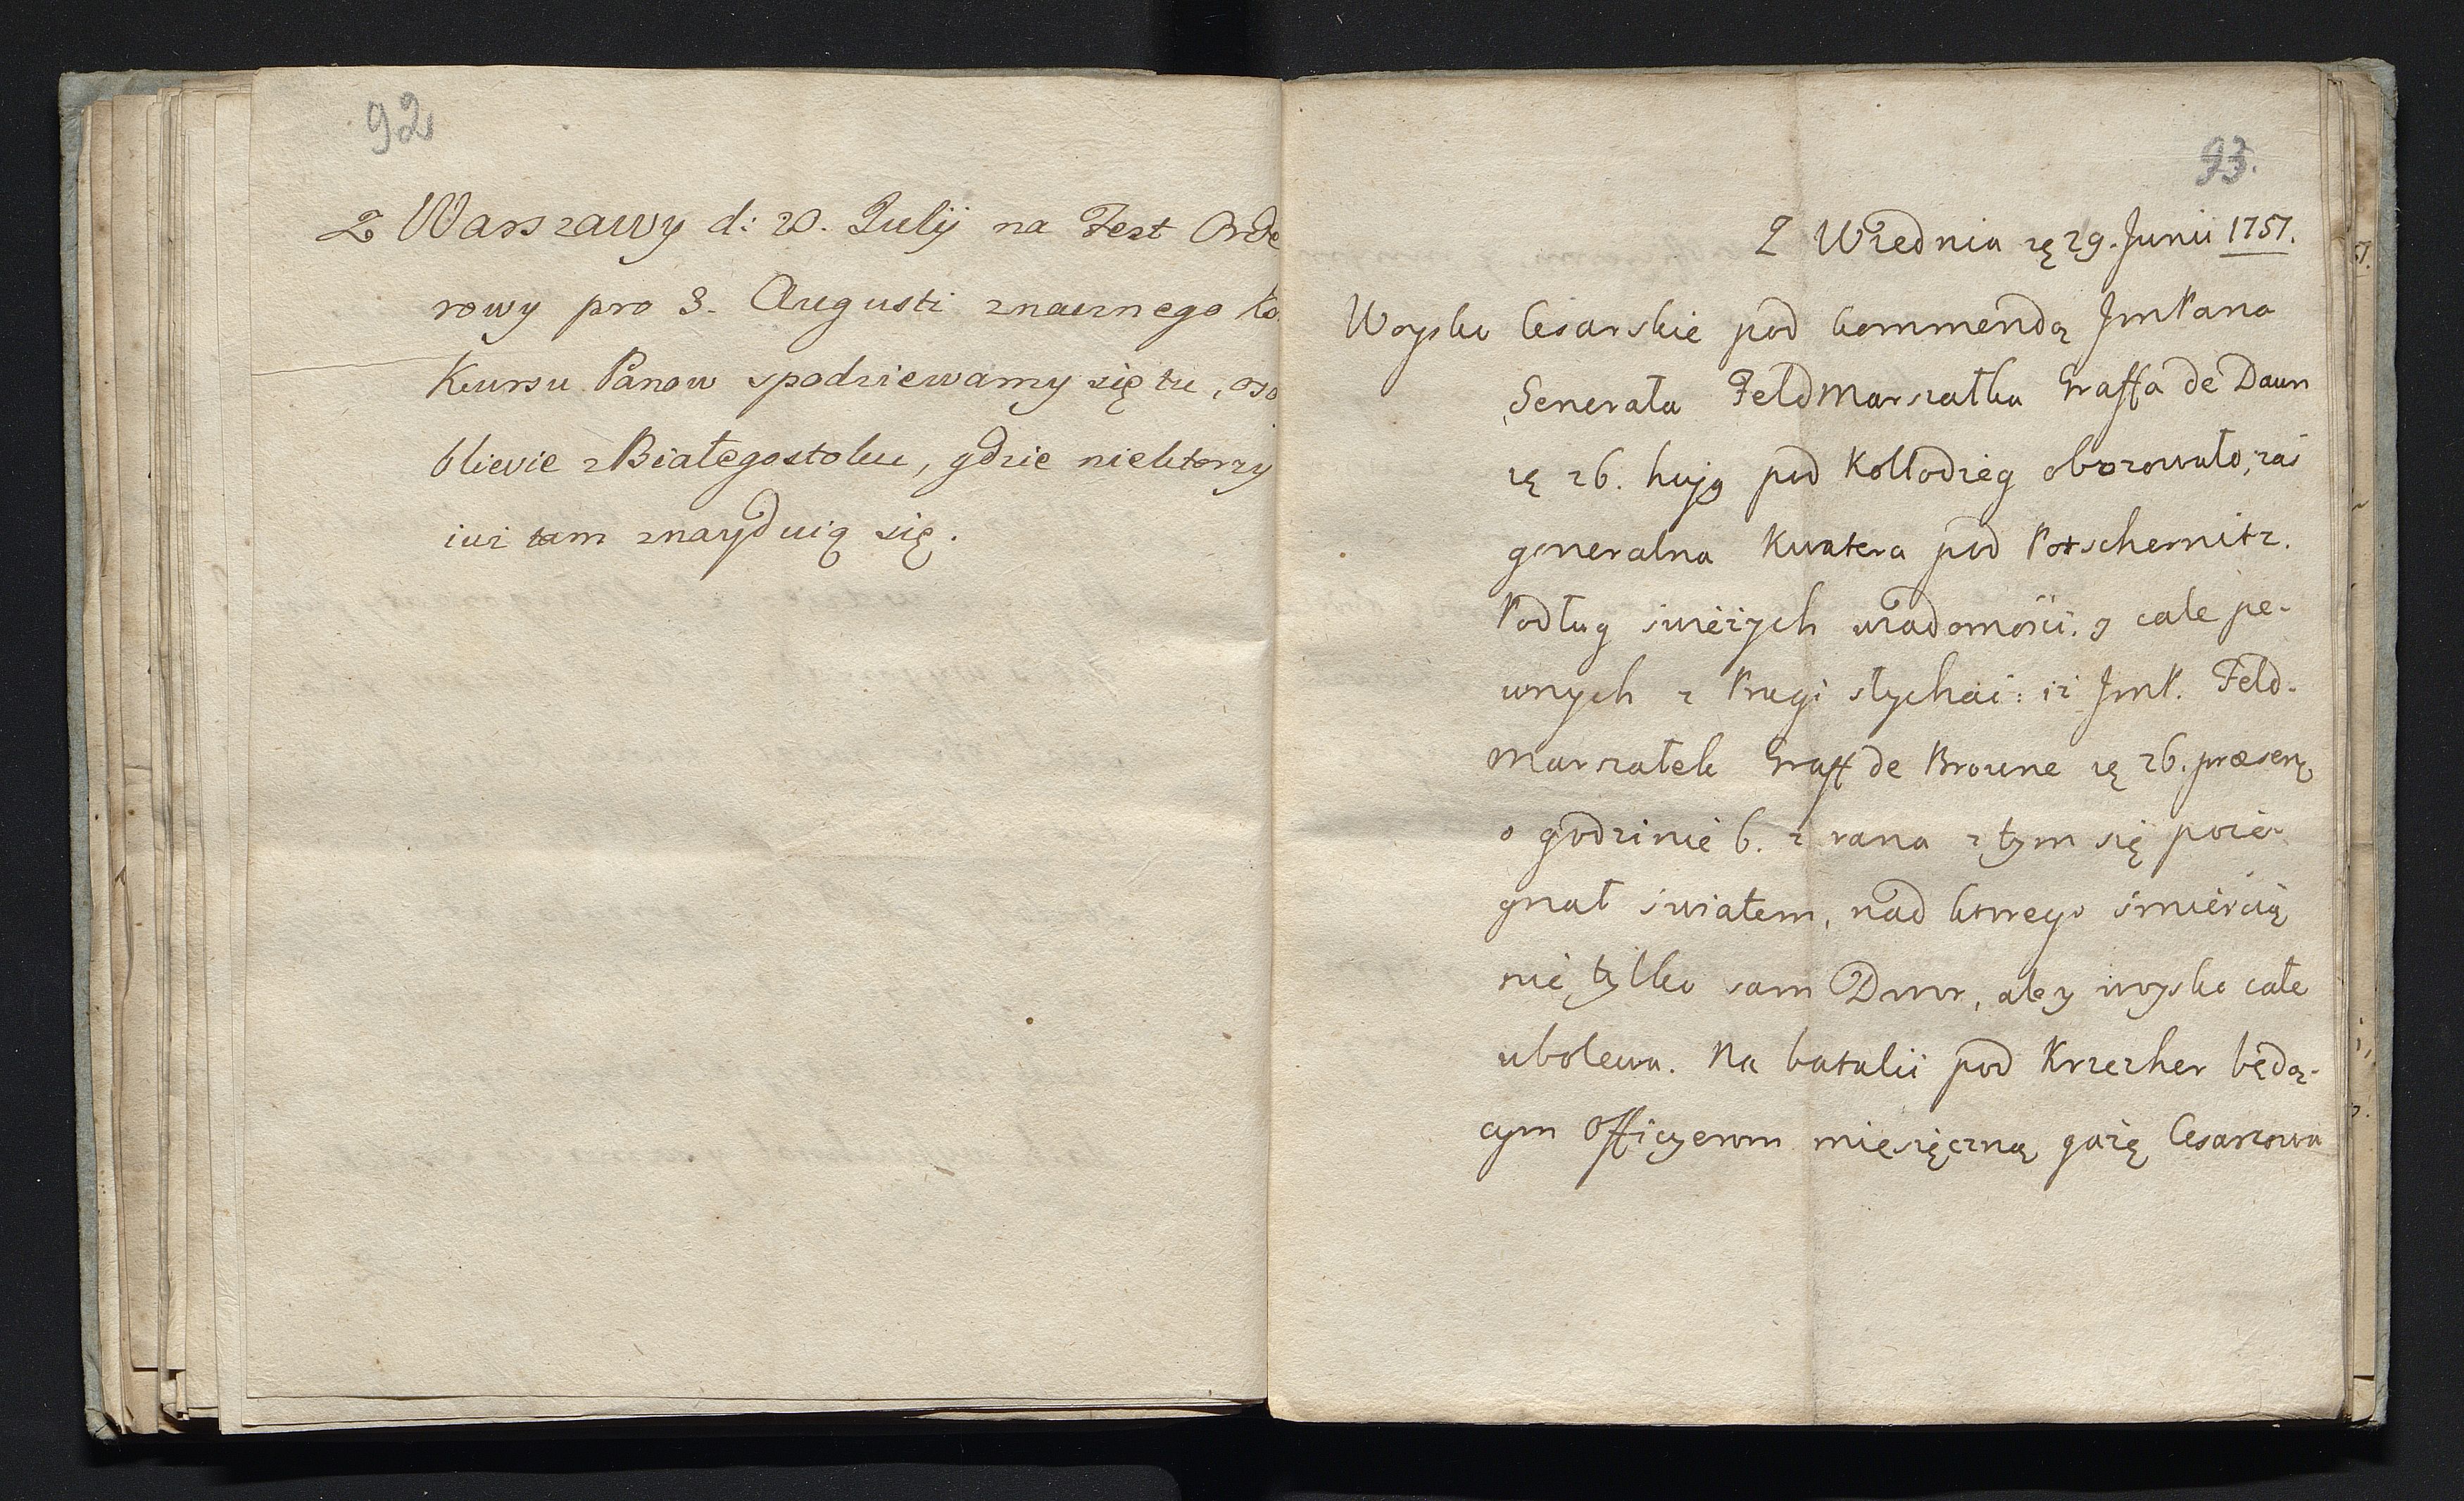 92
Z Warszawy d: 20. Julij na Fest Orde
rowy pro 3. Augusti znacznego ko
Kursu Panow spodziewamy się tu, oso
bliwie z Białegostoku, gdzie niektorzy
iuż tam znayduią się.
93.
Z Wiednia 29. Junii 1757.
Woysko Cesarskie pod kommendą JmPana
Generała FeldMarszałka Graffa de Daun
26. huj9 pod Kollodzieg obozowało, zaś
generalna Kwatera pod Potschernitz.
Podług świeżych wiadomości. y cale pe-
wnych z Pragi słychać: iż JmP. Feld-
Marszałek Graff de Browne 26. præsen.
o godzinie 6. z rana z tym się poże-
gnał światem, nad ktorego śmiercią
nie tylko sam Dwor, ale y woysko całe
ubolewa. Na batalii pod Krzezher będą-
cym Officyerom miesięczną gażę Cesarzowa